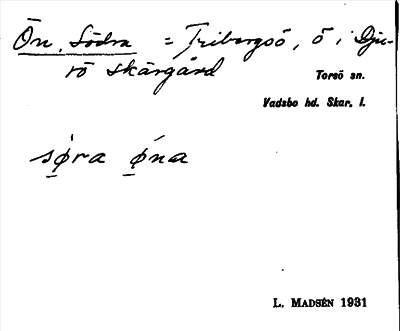 Ön, Södra = Tribergsö, ö i Dju-
rö skärgård
Torsö sn.
Vadsbo hd. Skar. l.
sø̱̀ra ǿ̱na
L. MADSÉN 1931